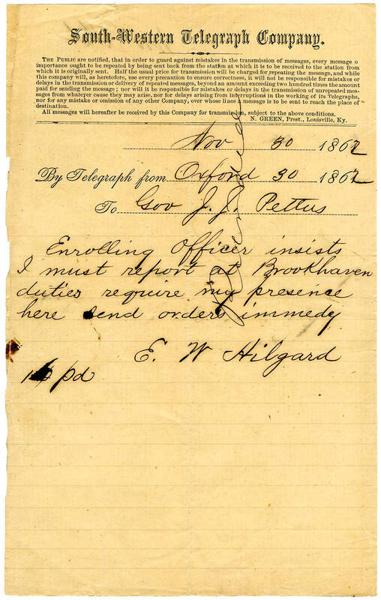 South-Western Telegraph Company.
THE PUBLIC are notified, that in order to guard against mistakes in the transmission of messages, every message o
importance ought to be repeated by being sent back from the station at which it is to be received to the station from
which it is originally sent. Half the usual price for transmission will be charged for repeating the message, and while
this company will, as heretofore, use every precaution to ensure correctness, it will not be responsible for mistakes or
delays in the transmission or delivery of repeated messages, beyond an amount exceeding two hundred times the amount
paid for sending the message; nor will it be responsible for mistakes or delays in the transmission of unrepeated mes-
sages from whatever cause they may arise, nor for delays arising from interruptions in the working of its Telegraphs,
nor for any mistake or omission of any other Company, over whose lines a message is to be sent to reach the place of
destination.
All messages will hereafter be received by this Company for transmission, subject to the above conditions.
N. GREEN, Prest., Louisville, Ky.
Nov 30 1862
By Telegraph from Oxford 30 1862
To Gov J. J. Pettus
Enrolling Officer insists
I must report at Brookhaven
duties require my presence
here send orders immedy
E. W Hilgard
pd